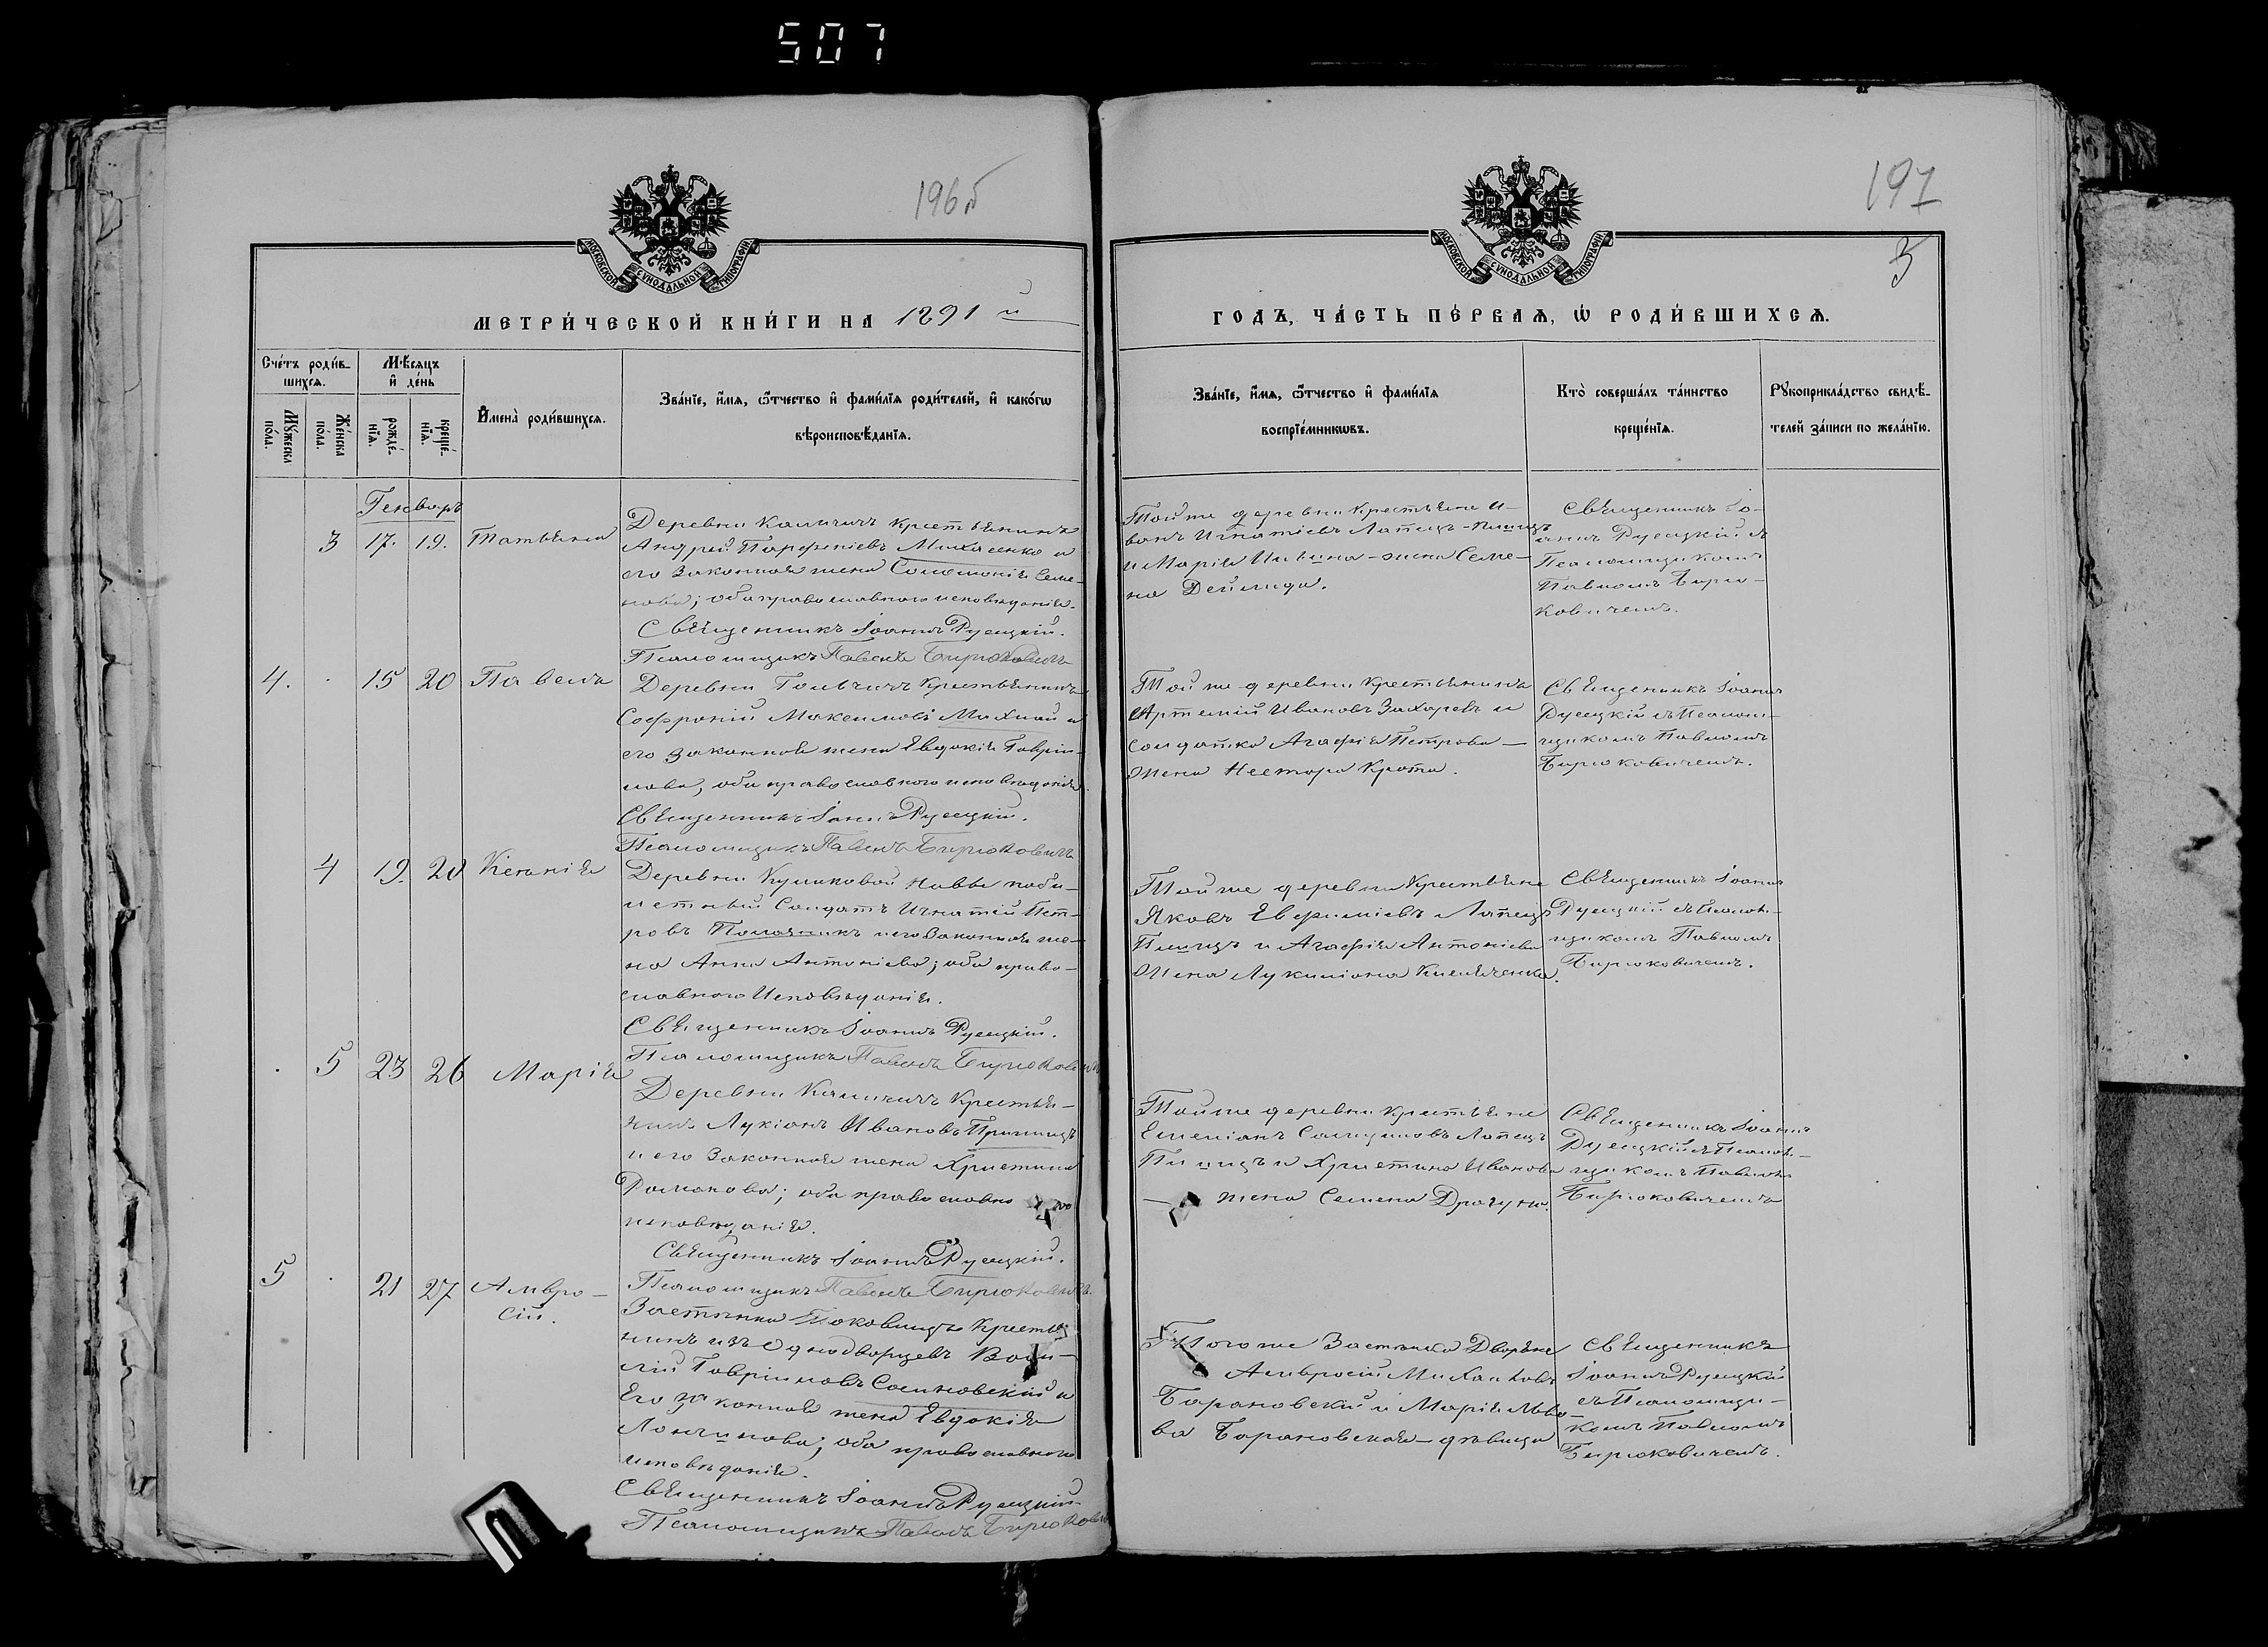 507
196б
197
5
МОСКОВСКОЙ СУНОДАЛЬНОЙ ТИПОГРАФІИ
МОСКОВСКОЙ СУНОДАЛЬНОЙ ТИПОГРАФІИ
МЕТРИ́ЧЕСКОЙ КНИ́ГИ НА 1891 й
ГОДЪ, ЧА́СТЬ ПЕ́РВАѦ, Ѡ РОДИ́ВШИХСѦ.
Сче́тъ роди́в-
шихсѧ.
Мꙋ́жеска
по́ла.
Же́нска
по́ла.
Мѣ́сѧцъ
и҆ де́нь
рожде́-
нїѧ.
креще́-
нїѧ.
И҆мена̀ роди́вшихсѧ.
Зва́нїе, и҆́мѧ, ѻ҆́тчество и҆ фами́лїѧ роди́телей, и҆ како́гѡ
вѣроисповѣ́данїѧ.
Зва́нїе, и҆́мѧ, ѻ҆́тчество и҆ фами́лїѧ
воспрїе́мникѡвъ.
Кто̀ соверша́лъ та́инство
креще́нїѧ.
Рꙋкоприкла́дство свидѣ́-
телей за́писи по жела́нїю.
Генварь
3 17. 19. Татьяна
Деревни Каличич крестьянинъ
Андрей Парфеніевъ Михасенко и
его законная жена Соломонія Семе-
нова; оба православнаго исповѣданія.
Священникъ Іоаннъ Русецкій.
Псаломщикъ Павелъ Бирюковичъ
Той же деревни крестьяне И-
ванъ Игнатіевъ Лапецъ-
и Марія жена Семе-
на Дейлида.
Священникъ Іо-
аннъ Русецкій съ
Псаломщикомъ
Павломъ Бирю-
ковичемъ.
4. 15 20 Павелъ
Деревни крестьянинъ
Софроній Максимовъ Михной и
его законная жена Евдокія Гаврии-
лова, оба православнаго исповѣданія.
Священникъ Іоаннъ Русецкій.
Псаломщикъ Павелъ Бирюковичъ
Той же деревни крестьянинъ
Артемій Ивановъ Захаревъ и
солдатка Агафія Петрова —
жена Нестора Крота.
Священникъ Іоаннъ
Русецкій съ Псалом-
щикомъ Павломъ
Бирюковичемъ.
4 19. 20 Ксенія
Деревни Куликовой Нивы
Солдатъ Игнатій Пет-
ровъ и его законная же-
на Анна Антоніева; оба право-
славнаго Исповѣданія.
Священникъ Іоаннъ Русецкій.
Псаломщикъ Павелъ Бирюковичъ
Той же деревни крестьяне
Яковъ Евфиміевъ Лапецъ
и Агафія Антоніева
жена Лукиліона
Священникъ Іоаннъ
Русецкій съ Псалом-
щикомъ Павломъ
Бирюковичемъ.
5 23 26 Марія
Деревни Каличич крестья-
нинъ Лукіанъ Ивановъ
и его законная жена Христина
Романова; оба православнаго
исповѣданія.
Священникъ Іоаннъ Русецкій.
Псаломщикъ Павелъ Бирюковичъ.
Той же деревни крестьяне
Емеліанъ Лапецъ
и Христина Иванова
— жена Семена Драгуна.
Священникъ Іоаннъ
Русецкій съ Псалом-
щикомъ Павломъ
Бирюковичемъ
5 21 27 Амвро-
сій.
Застѣнка крестья-
нинъ изъ Однодворцевъ Васи-
лій Гавріиловъ Сосиновскій и
Его законная жена Евдокія
Лонгинова; оба православнаго
исповѣданія.
Священникъ Іоаннъ Русецкій
Псаломщикъ Павелъ Бирюковичъ
Того же Застѣнка Дворяне
Амвросій Михаиловъ
Барановскій и Марія Льво-
ва Барановская — дѣвица
Священникъ
Іоаннъ Русецкій
съ Псаломщи-
комъ Павломъ
Бирюковичемъ.